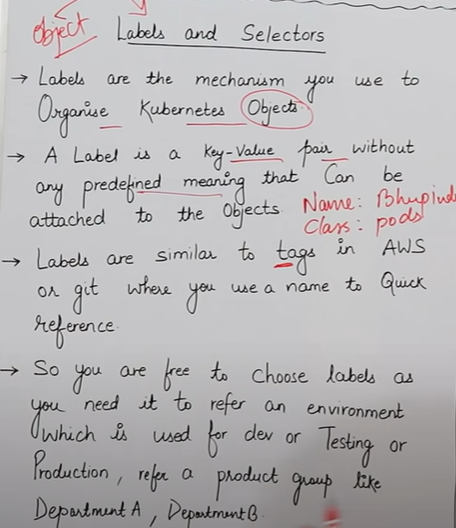 Object Labels and Selectors
→ Labels are the mechanism you use to
Organise Kubernetes Objects.
→ A Label is a key-Value pair without
any predefined meaning that Can be
attached to the Objects. Name: Bhupind
Class: pods
→ Labels are similar to tags in AWS
or git where you use a name to Quick
reference.
→ So you are free to choose labels as
you need it to refer an environment
which is used for dev or Testing or
Production, refer a product group like
Department A, Department B.